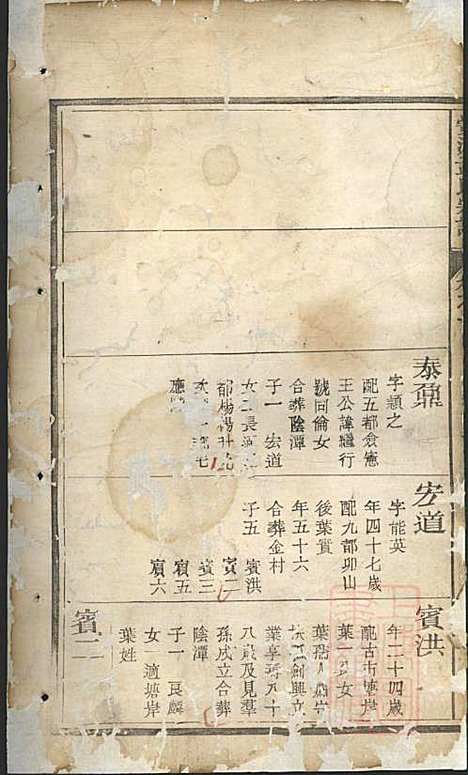 泰鼐
字類之
配五都僉憲
王公諱繼行
號同倫女
合葬陰潭
子一 宏道
女二長
宏道
字能英
年四十七歲
配九都卯山
後葉貿
年五十六
合葬金村
子五 賓洪
賓二
賓三
賓五
賓六
賓洪
年二十四歲
配古市連岸
葉一 女
業享壽九十
八歲及見羣
孫成立合葬
陰潭
子一 良麟
女一適塘岸
葉姓
賓二